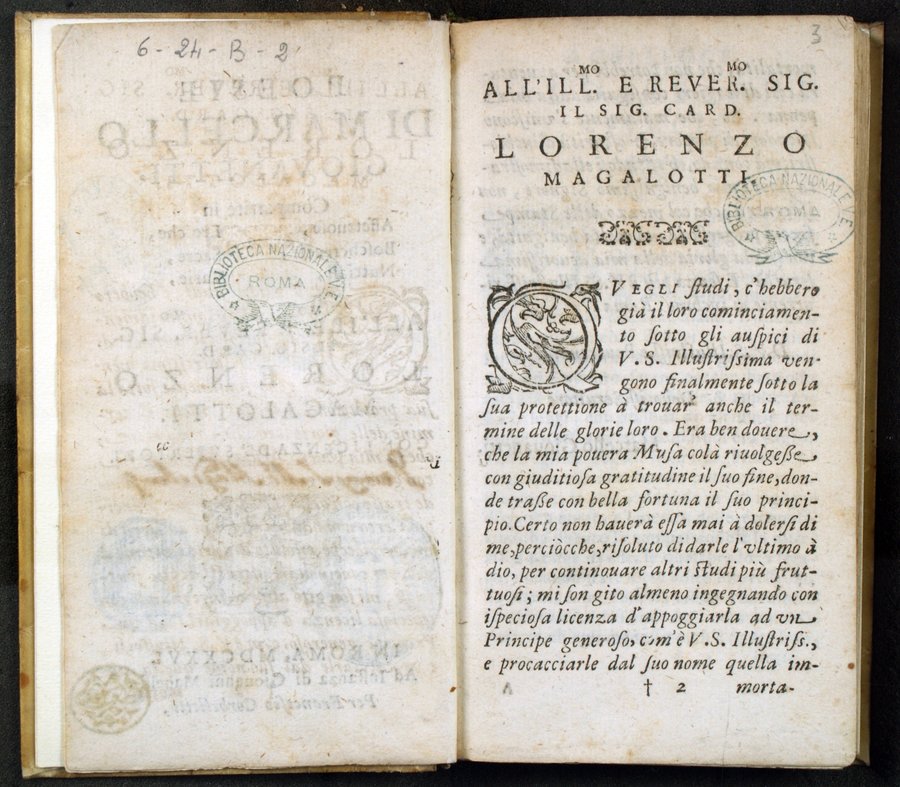 6-24-B-2
BIBLIOTECA NAZIONALE V·E
ROMA
3
ALL'ILL.MO E REVER.MO SIG.
IL SIG. CARD.
LORENZO
MAGALOTTI.
BIBLIOTECA NAZIONALE V·E
QVEGLI ſtudi, c'hebbero
già il loro cominciamen-
to ſotto gli auſpici di
V.S. Illuſtriſsima ven-
gono finalmente ſotto la
ſua protettione à trouar' anche il ter-
mine delle glorie loro. Era ben douere,
che la mia pouera Muſa colà riuolgeſſe
con giuditioſa gratitudine il ſuo fine, don-
de traſſe con bella fortuna il ſuo princi-
pio. Certo non hauerà eſſa mai à dolerſi di
me, perciòcche, riſoluto di darle l'vltimo à
dio, per continouare altri ſtudi più frut-
tuoſi; mi ſon gito almeno ingegnando con
iſpecioſa licenza d'appoggiarla ad vn
Principe generoſo, com'è V.S. Illuſtriſs.,
e procacciarle dal ſuo nome quella im-
† 2 morta-